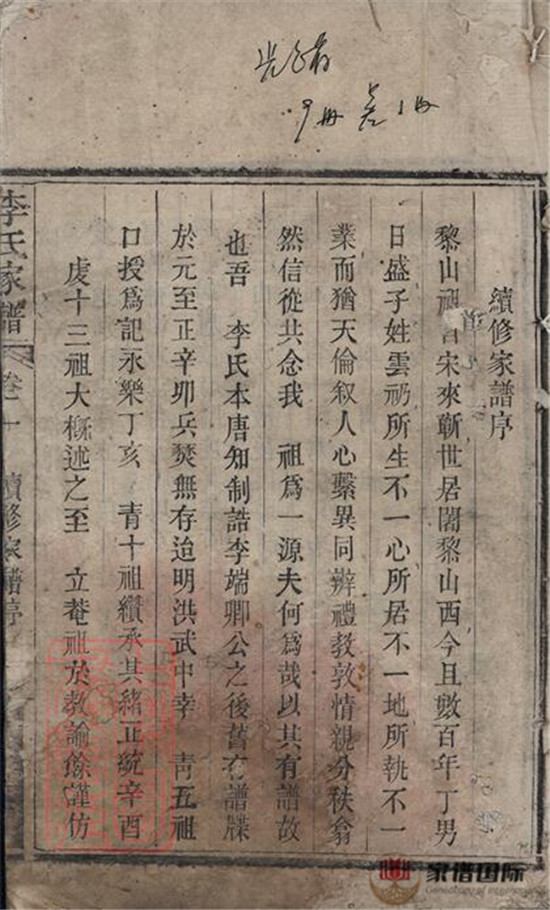 光緒
9冊 卷1冊
續修家譜序
黎山祖自宋來蘄世居闍黎山西今且數百年丁男
日盛子姓雲礽所生不一心所居不一地所執不一
業而猶天倫叙人心繫異同辨禮教敦情親分秩翕
然信從共念我 祖爲一源夫何爲哉以其有譜故
也吾 李氏本唐知制誥李端卿公之後舊有譜牒
於元至正辛卯兵燹無存迨明洪武中幸 青五祖
口授爲記永樂丁亥 青十祖纘承其緒正統辛酉
虔十三祖大槪述之至 立菴祖於敎諭餘謹仿
李氏家譜 卷一 續修家譜序
家谱国际
Genealogy of international